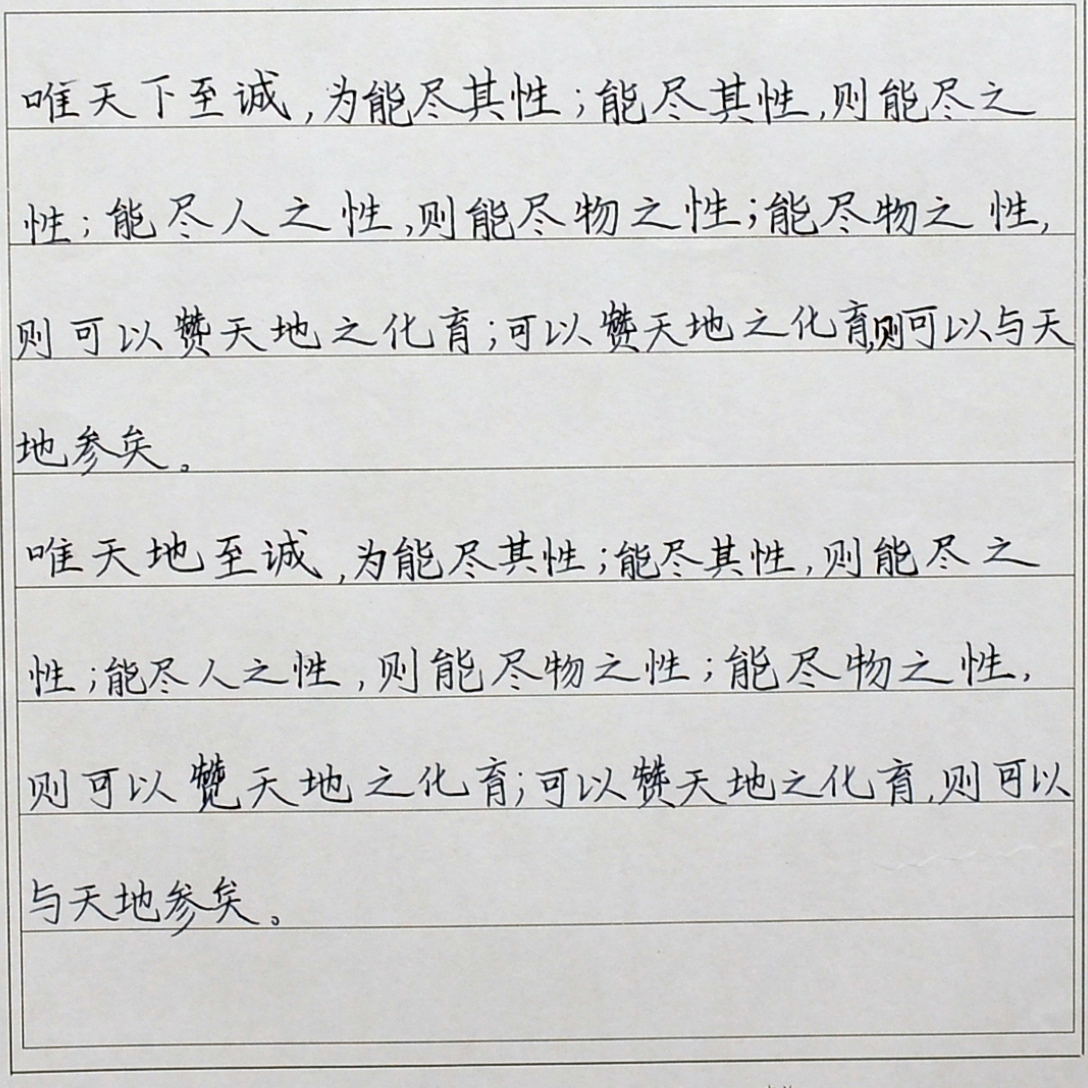 唯天下至诚,为能尽其性;能尽其性,则能尽之
性;能尽人之性,则能尽物之性;能尽物之性,
则可以赞天地之化育;可以赞天地之化育,则可以与天
地参矣。
唯天地至诚,为能尽其性;能尽其性,则能尽之
性;能尽人之性,则能尽物之性;能尽物之性,
则可以赞天地之化育;可以赞天地之化育,则可以
与天地参矣。